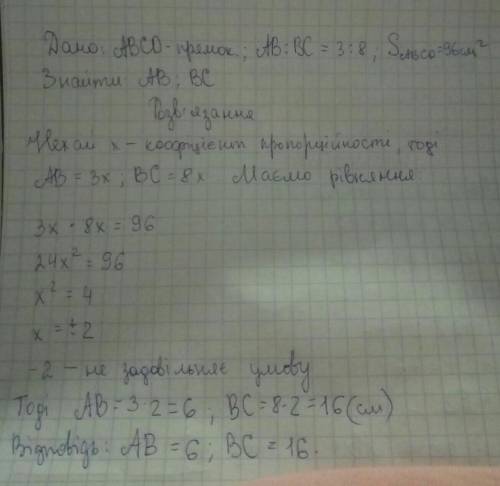 Дано: ABCD - прямок.; AB:BC = 3:8; S_ABCD = 96см²
Знайти AB; BC
Розв'язання
Нехай x - коефіцієнт пропорційности, тоді
AB = 3x; BC = 8x Маємо рівняння
3x · 8x = 96
24x² = 96
x² = 4
x = ±2
-2 - не задовільняє умову
Тоді AB = 3·2 = 6; BC = 8·2 = 16(см)
Відповідь: AB = 6; BC = 16.